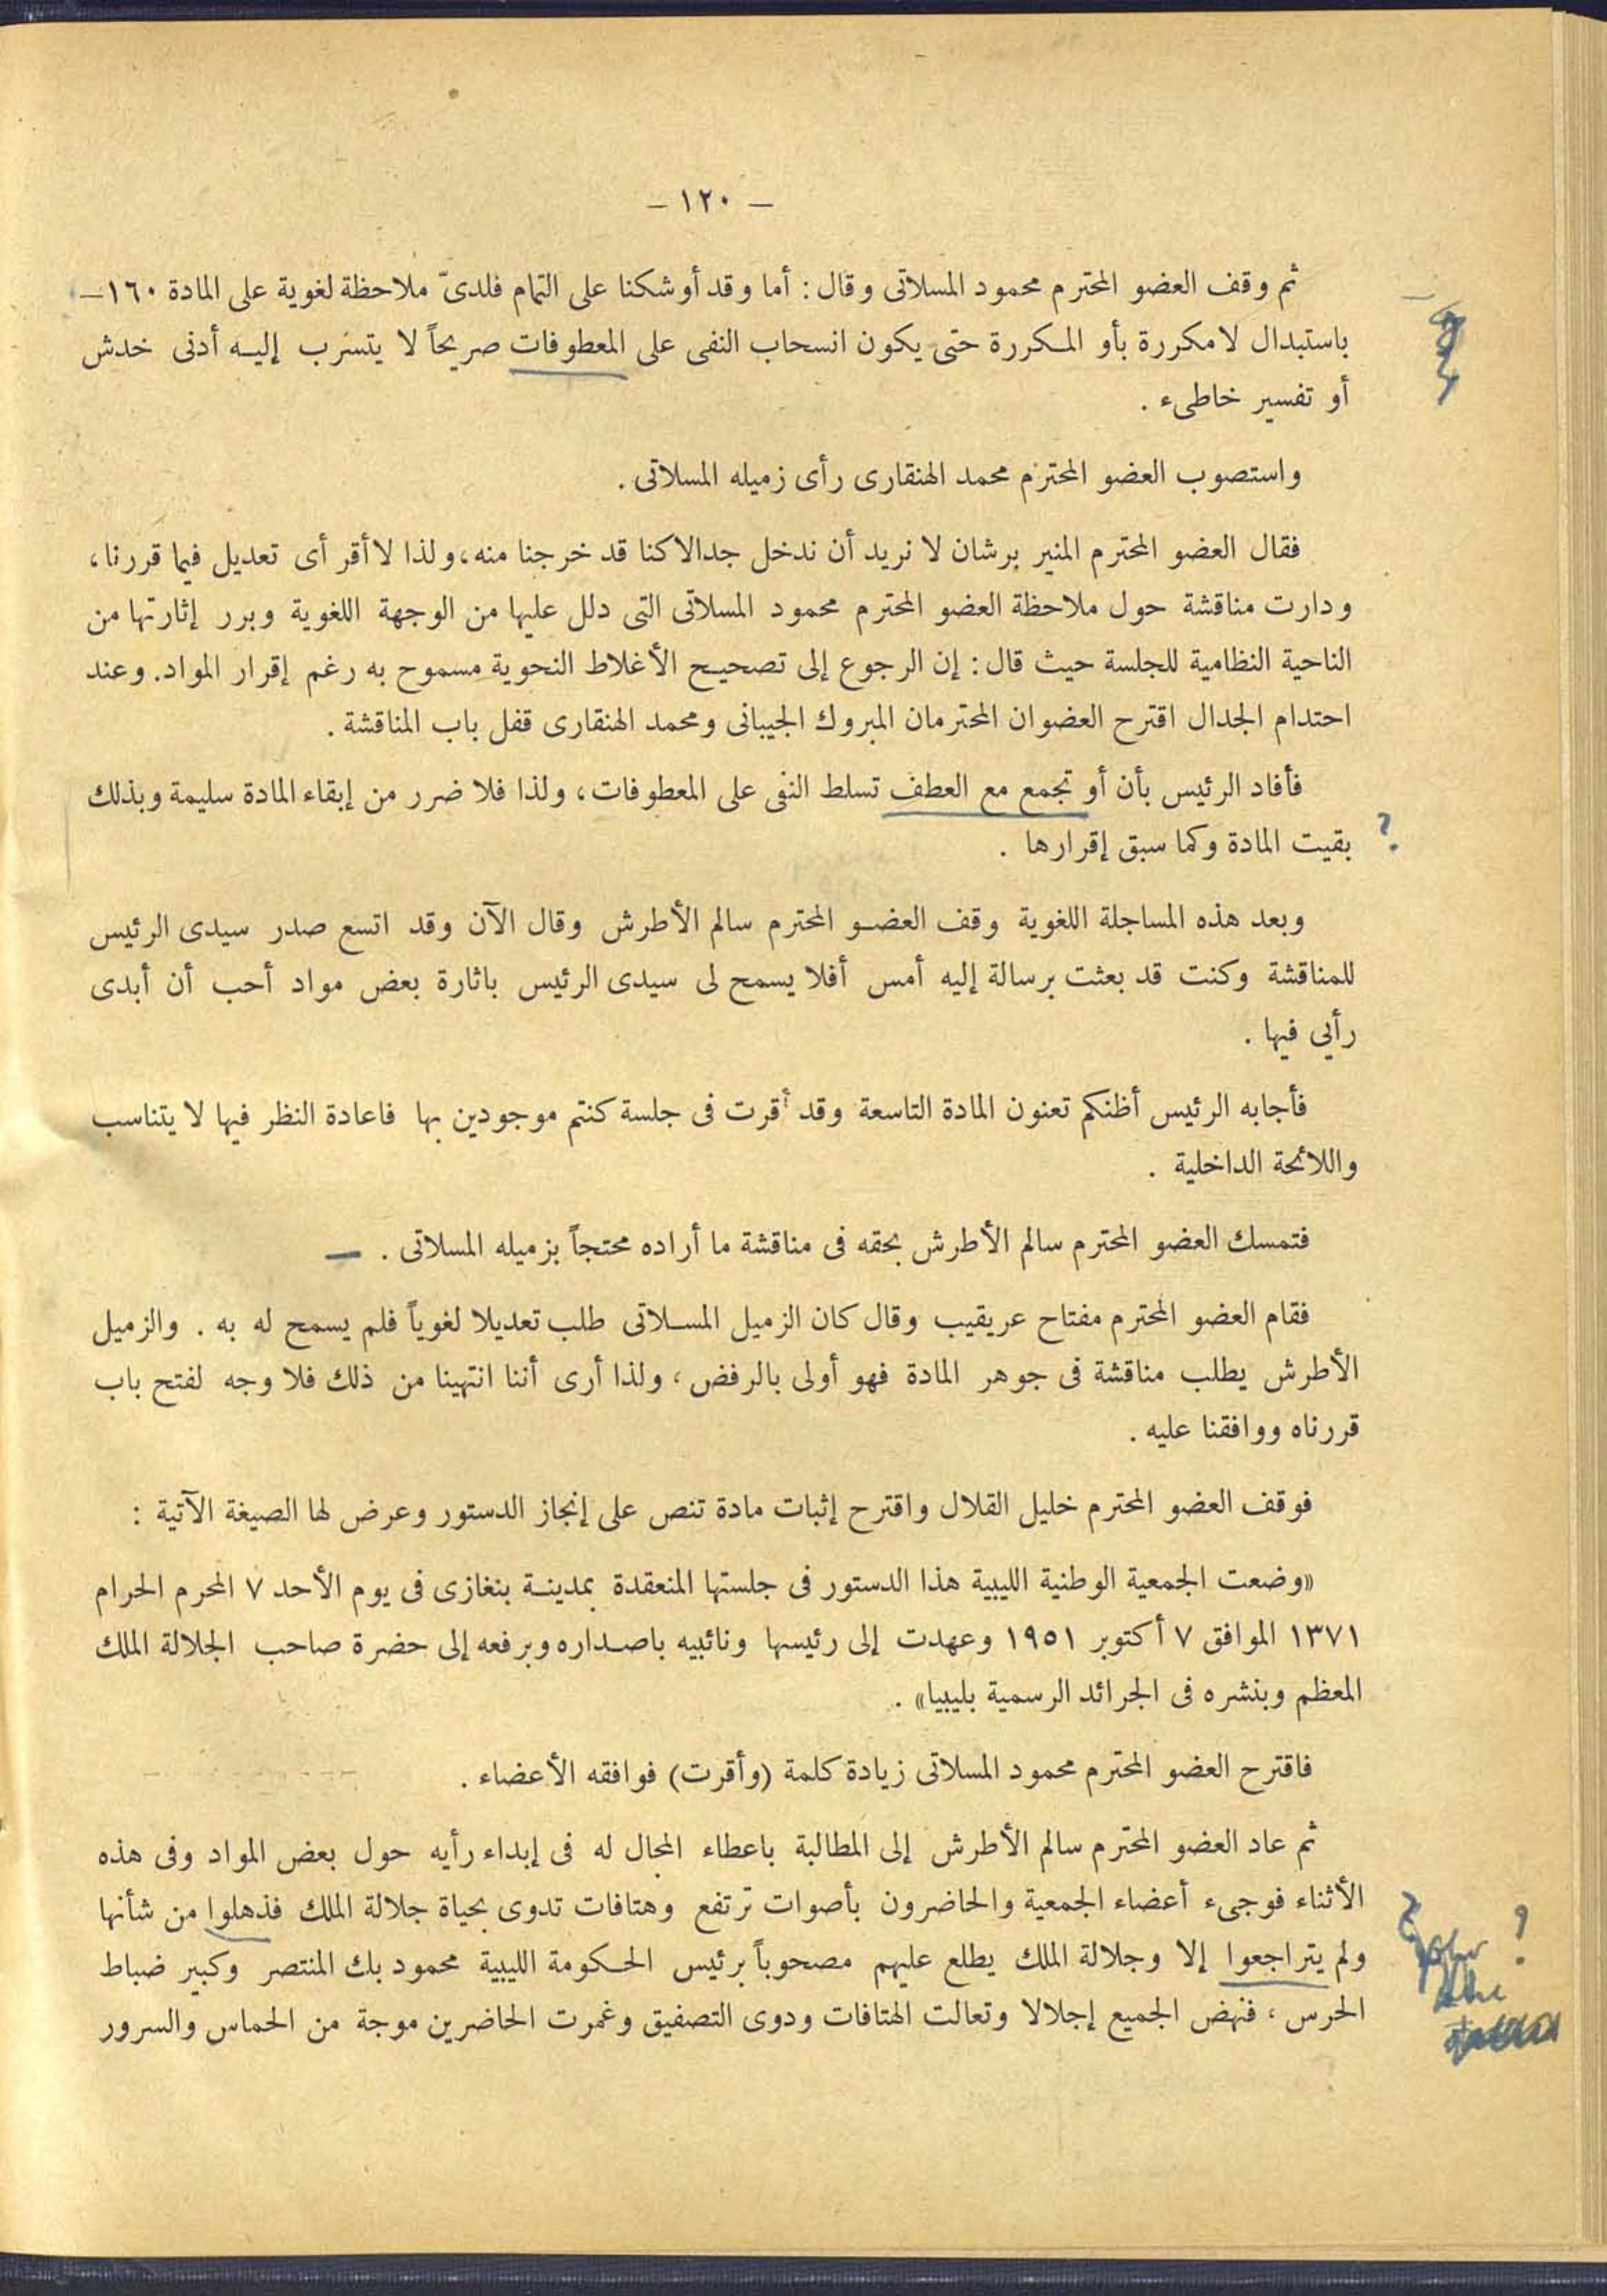 — ١٢٠ —
ثم وقف العضو المحترم محمود المسلاتى وقال : أما وقد أوشكنا على التمام فلدىّ ملاحظة لغوية على المادة ١٦٠—
باستبدال لا مكررة بأو المكررة حتى يكون انسحاب النفى على المعطوفات صريحاً لا يتسرب إليه أدنى خدش
أو تفسير خاطىء .
واستصوب العضو المحترم محمد الهنقارى رأى زميله المسلاتى .
فقال العضو المحترم المنير برشان لا نريد أن ندخل جدالا كنا قد خرجنا منه، ولذا لا أقر أى تعديل فيما قررنا،
ودارت مناقشة حول ملاحظة العضو المحترم محمود المسلاتى التى دلل عليها من الوجهة اللغوية وبرر إثارتها من
الناحية النظامية للجلسة حيث قال : إن الرجوع إلى تصحيح الأغلاط النحوية مسموح به رغم إقرار المواد. وعند
احتدام الجدال اقترح العضوان المحترمان المبروك الجيبانى ومحمد الهنقارى قفل باب المناقشة .
فأفاد الرئيس بأن أو تجمع مع العطف تسلط النفى على المعطوفات، ولذا فلا ضرر من إبقاء المادة سليمة وبذلك
؟ بقيت المادة وكما سبق إقرارها .
وبعد هذه المساجلة اللغوية وقف العضو المحترم سالم الأطرش وقال الآن وقد اتسع صدر سيدى الرئيس
للمناقشة وكنت قد بعثت برسالة إليه أمس أفلا يسمح لى سيدى الرئيس باثارة بعض مواد أحب أن أبدى
رأيي فيها .
فأجابه الرئيس أظنكم تعنون المادة التاسعة وقد أقرت فى جلسة كنتم موجودين بها فاعادة النظر فيها لا يتناسب
واللائحة الداخلية .
فتمسك العضو المحترم سالم الأطرش بحقه فى مناقشة ما أراده محتجاً بزميله المسلاتى . —
فقام العضو المحترم مفتاح عريقيب وقال كان الزميل المسلاتى طلب تعديلا لغوياً فلم يسمح له به . والزميل
الأطرش يطلب مناقشة فى جوهر المادة فهو أولى بالرفض، ولذا أرى أننا انتهينا من ذلك فلا وجه لفتح باب
قررناه ووافقنا عليه .
فوقف العضو المحترم خليل القلال واقترح إثبات مادة تنص على إنجاز الدستور وعرض لها الصيغة الآتية :
«وضعت الجمعية الوطنية الليبية هذا الدستور فى جلستها المنعقدة بمدينة بنغازى فى يوم الأحد ٧ المحرم الحرام
١٣٧١ الموافق ٧ أكتوبر ١٩٥١ وعهدت إلى رئيسها ونائبيه باصداره وبرفعه إلى حضرة صاحب الجلالة الملك
المعظم وبنشره فى الجرائد الرسمية بليبيا» .
فاقترح العضو المحترم محمود المسلاتى زيادة كلمة (وأقرت) فوافقه الأعضاء .
ثم عاد العضو المحترم سالم الأطرش إلى المطالبة باعطاء المجال له فى إبداء رأيه حول بعض المواد وفى هذه
الأثناء فوجىء أعضاء الجمعية والحاضرون بأصوات ترتفع وهتافات تدوى بحياة جلالة الملك فذهلوا من شأنها
ولم يتراجعوا إلا وجلالة الملك يطلع عليهم مصحوباً برئيس الحكومة الليبية محمود بك المنتصر وكبير ضباط
الحرس، فنهض الجميع إجلالا وتعالت الهتافات ودوى التصفيق وغمرت الحاضرين موجة من الحماس والسرور